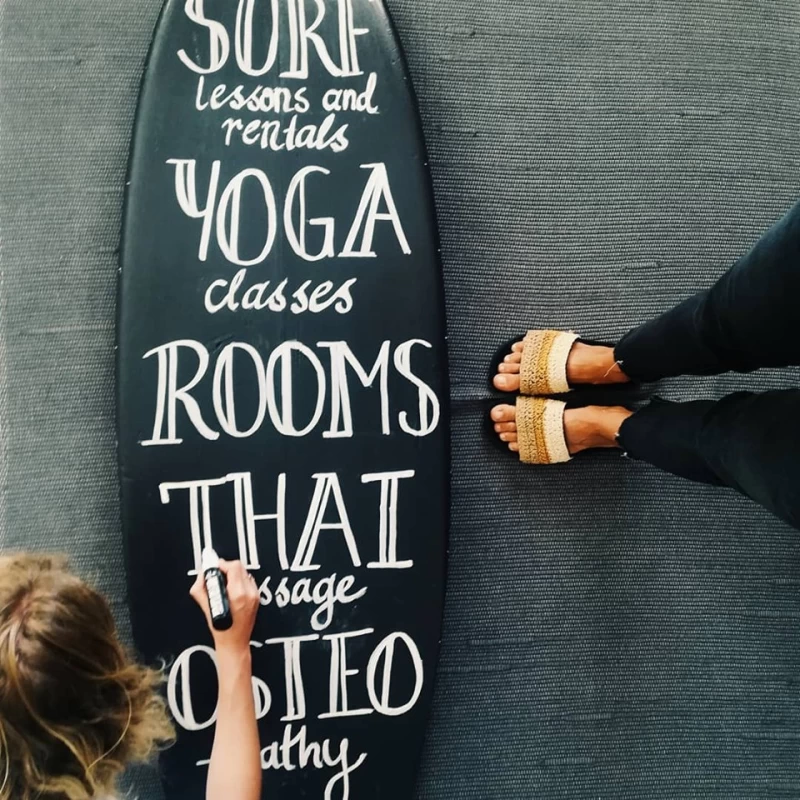 SURF
lessons and
rentals
YOGA
classes
ROOMS
THAI
ssage
OSTEO
athy